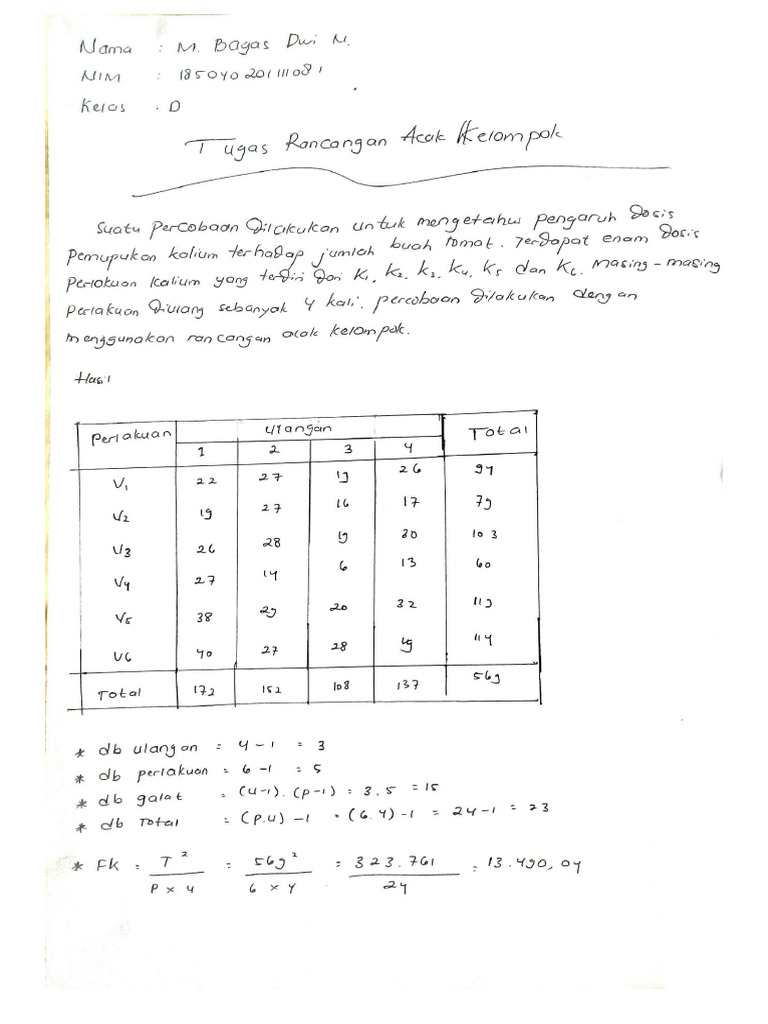 Nama : M. Bagas Dwi N.
NIM : 185040201111081
Kelas : D
Tugas Rancangan Acak Kelompok
Suatu percobaan dilakukan untuk mengetahui pengaruh dosis
Pemupukan kalium terhadap jumlah buah tomat. Terdapat enam dosis
Perlakuan kalium yang terdiri dari K1, K2, K3, K4, K5 dan K6. Masing-masing
perlakuan diulang sebanyak 4 kali. percobaan dilakukan dengan
menggunakan rancangan acak kelompok.
Hasil
Perlakuan Ulangan Total
1 2 3 4
V1 22 27 19 26 94
V2 19 27 16 17 79
V3 26 28 19 30 103
V4 27 14 6 13 60
V5 38 29 20 32 119
V6 40 27 28 19 114
Total 172 152 108 137 569
* db ulangan = 4-1 = 3
* db perlakuan = 6-1 = 5
* db galat = (u-1).(p-1) = 3.5 = 15
* db Total = (p.u) -1 = (6.4)-1 = 24-1 = 23
* Fk = T² / P x u = 569² / 6 x 4 = 323.761 / 24 = 13.490,04